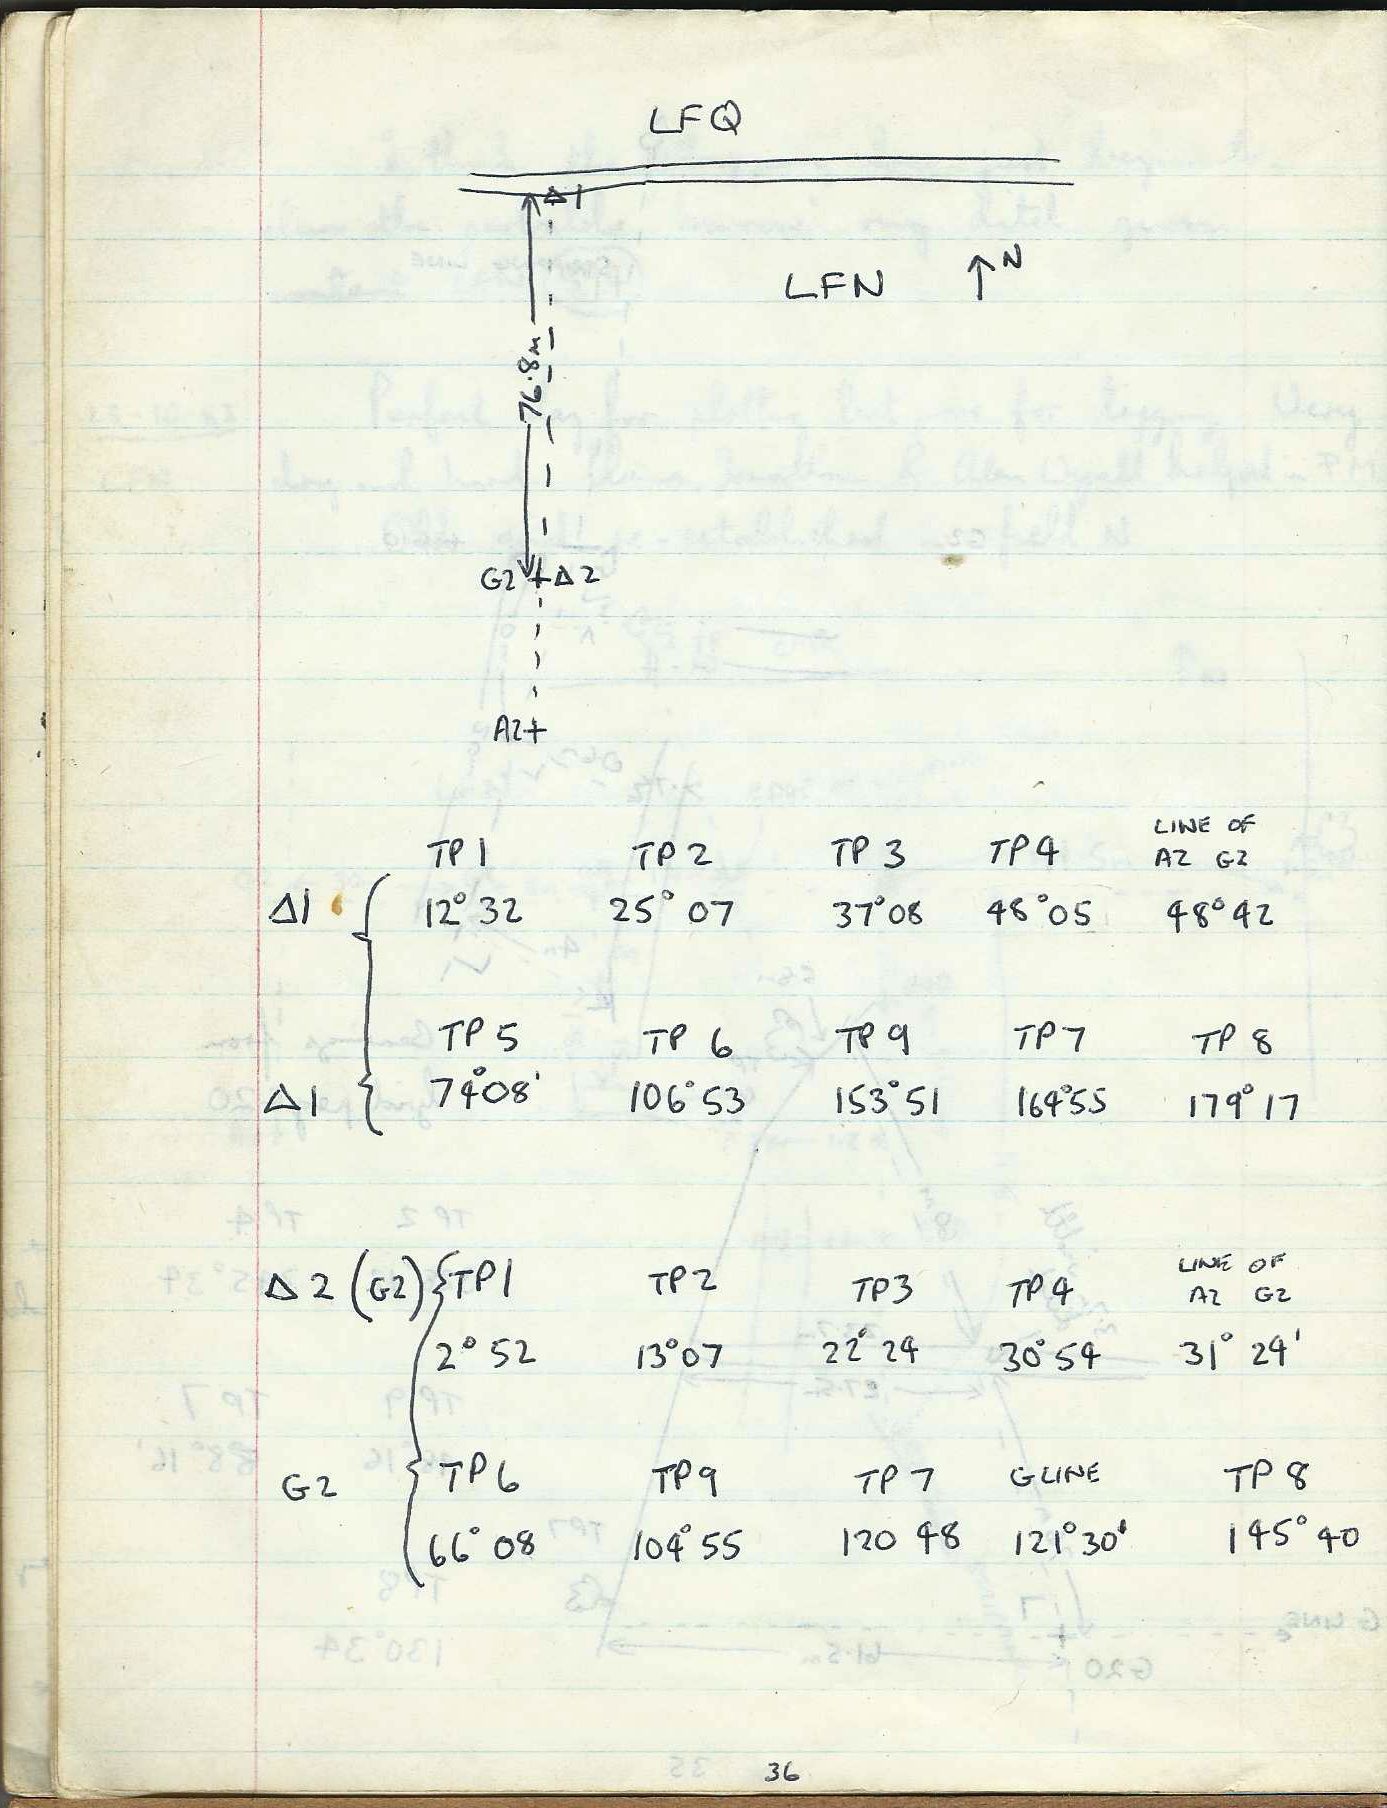 LFQ
Δ1
LFN ↑N
76.8m
G2 + Δ2
A2+
TP1 TP2 TP3 TP4 LINE OF A2 G2
Δ1 12°32 25°07 37°08 48°05 48°42
TP5 TP6 TP9 TP7 TP8
Δ1 74°08' 106°53 153°51 164°55 179°17
Δ2 (G2) TP1 TP2 TP3 TP4 LINE OF A2 G2
2°52 13°07 22°24 30°54 31°24'
G2 TP6 TP9 TP7 G LINE TP8
66°08 104°55 120 48 121°30' 145°40
36